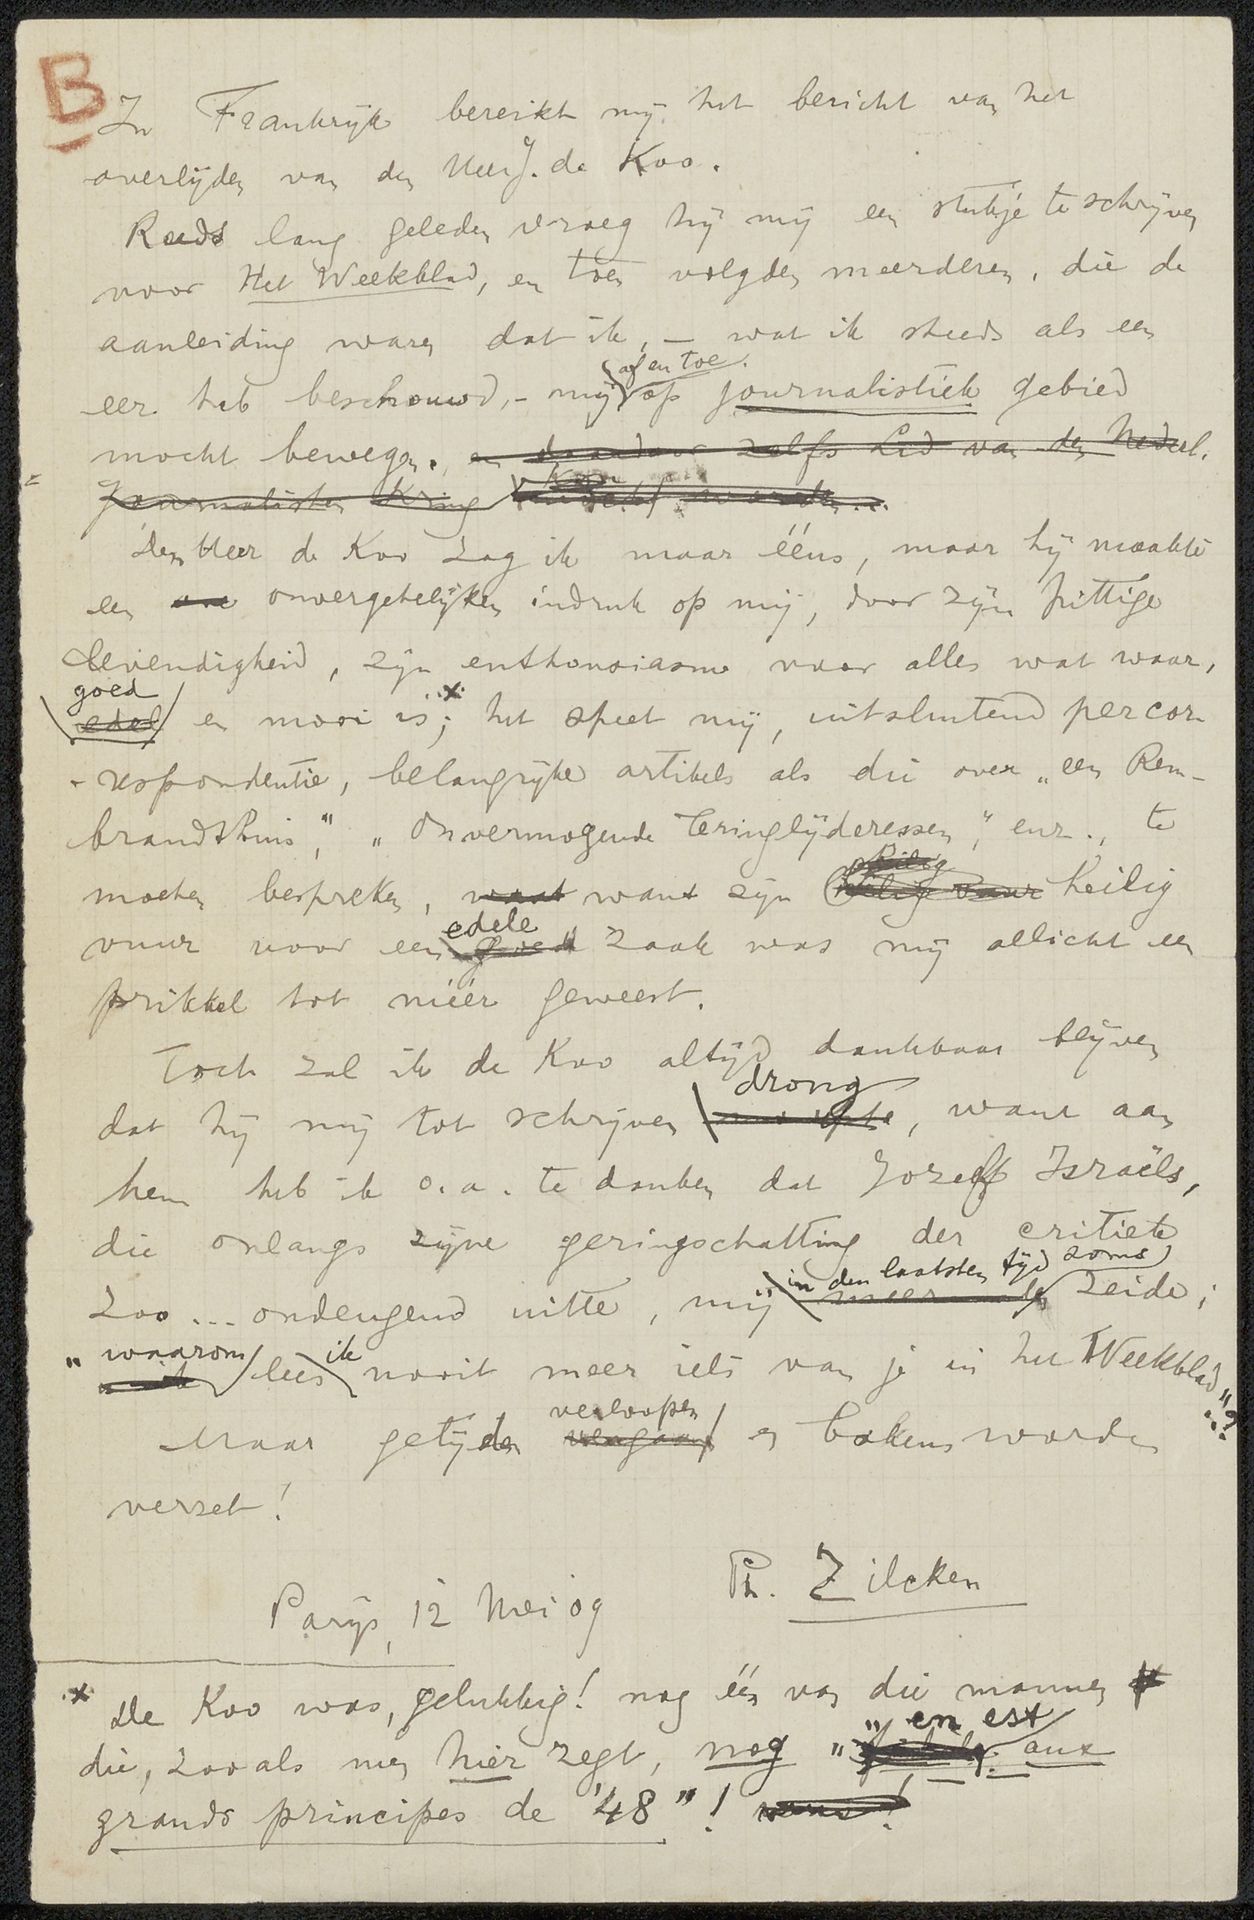 B
In Frankrijk bereikt mij het bericht van het
overlijden van den Heer J. de Koo.
Reeds lang geleden vroeg hij mij een stukje te schrijven
voor Het Weekblad, en toen volgden meerderen, die de
aanleiding waren dat ik, – wat ik steeds als een
eer heb beschouwd, – mij af en toe op journalistiek gebied
mocht bewegen, en daardoor zelfs Lid van den Nederl.
Journalisten Kring worden...
Den Heer de Koo zag ik maar ééns, maar hij maakte
een onvergetelijken indruk op mij, door zijn pittige
levendigheid, zijn enthousiasme voor alles wat waar,
goed
edel en mooi is *; het speet mij, uitsluitend per cor-
-respondentie, belangrijke artikels als die over „een Rem-
brandthuis", „Onvermogende Teringlijderessen", enz., te
moeten bespreken, want zijn heilig
edele
vuur voor een goede zaak was mij allicht een
prikkel tot méér geweest.
Toch zal ik de Koo altijd dankbaar blijven
drong
dat hij mij tot schrijven , want aan
hem heb ik o.a. te danken dat Jozeff Israëls,
die onlangs zijne geringschatting der critiek
in den laatsten tijd soms
zoo ... ondeugend uitte, mij zeide;
„waarom lees ik nooit meer iets van je in het Weekblad"?
verloopen
Maar getijden en bakens worden
verzet!
Ph. Zilcken
Parijs, 12 Mei 09
* De Koo was, gelukkig! nog één van die mannen
„en est
die, zooals men hier zegt, nog „ aux
grands principes de '48"!